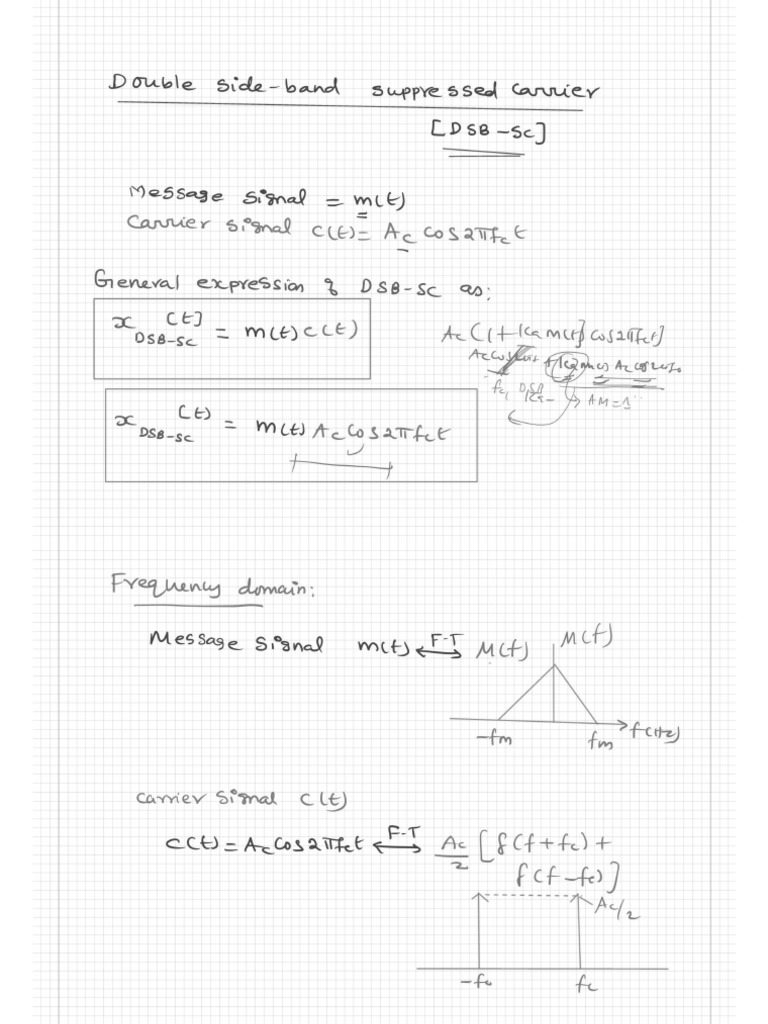 Double side-band suppressed carrier
[DSB-SC]
Message signal = m(t)
Carrier signal c(t) = Ac cos2πfct
General expression of DSB-SC as:
x DSB-SC (t] = m(t) c(t)
Ac(1+kam(t)] cos2πfct]
x DSB-SC (t) = m(t) Ac cos2πfct
AM=1
Frequency domain:
Message signal m(t) ⟷ F-T M(f)
M(f)
-fm fm f(Hz)
carrier signal c(t)
c(t) = Ac cos2πfct ⟷ F-T Ac/2 [δ(f+fc) +
δ(f-fc)]
Ac/2
-fc fc